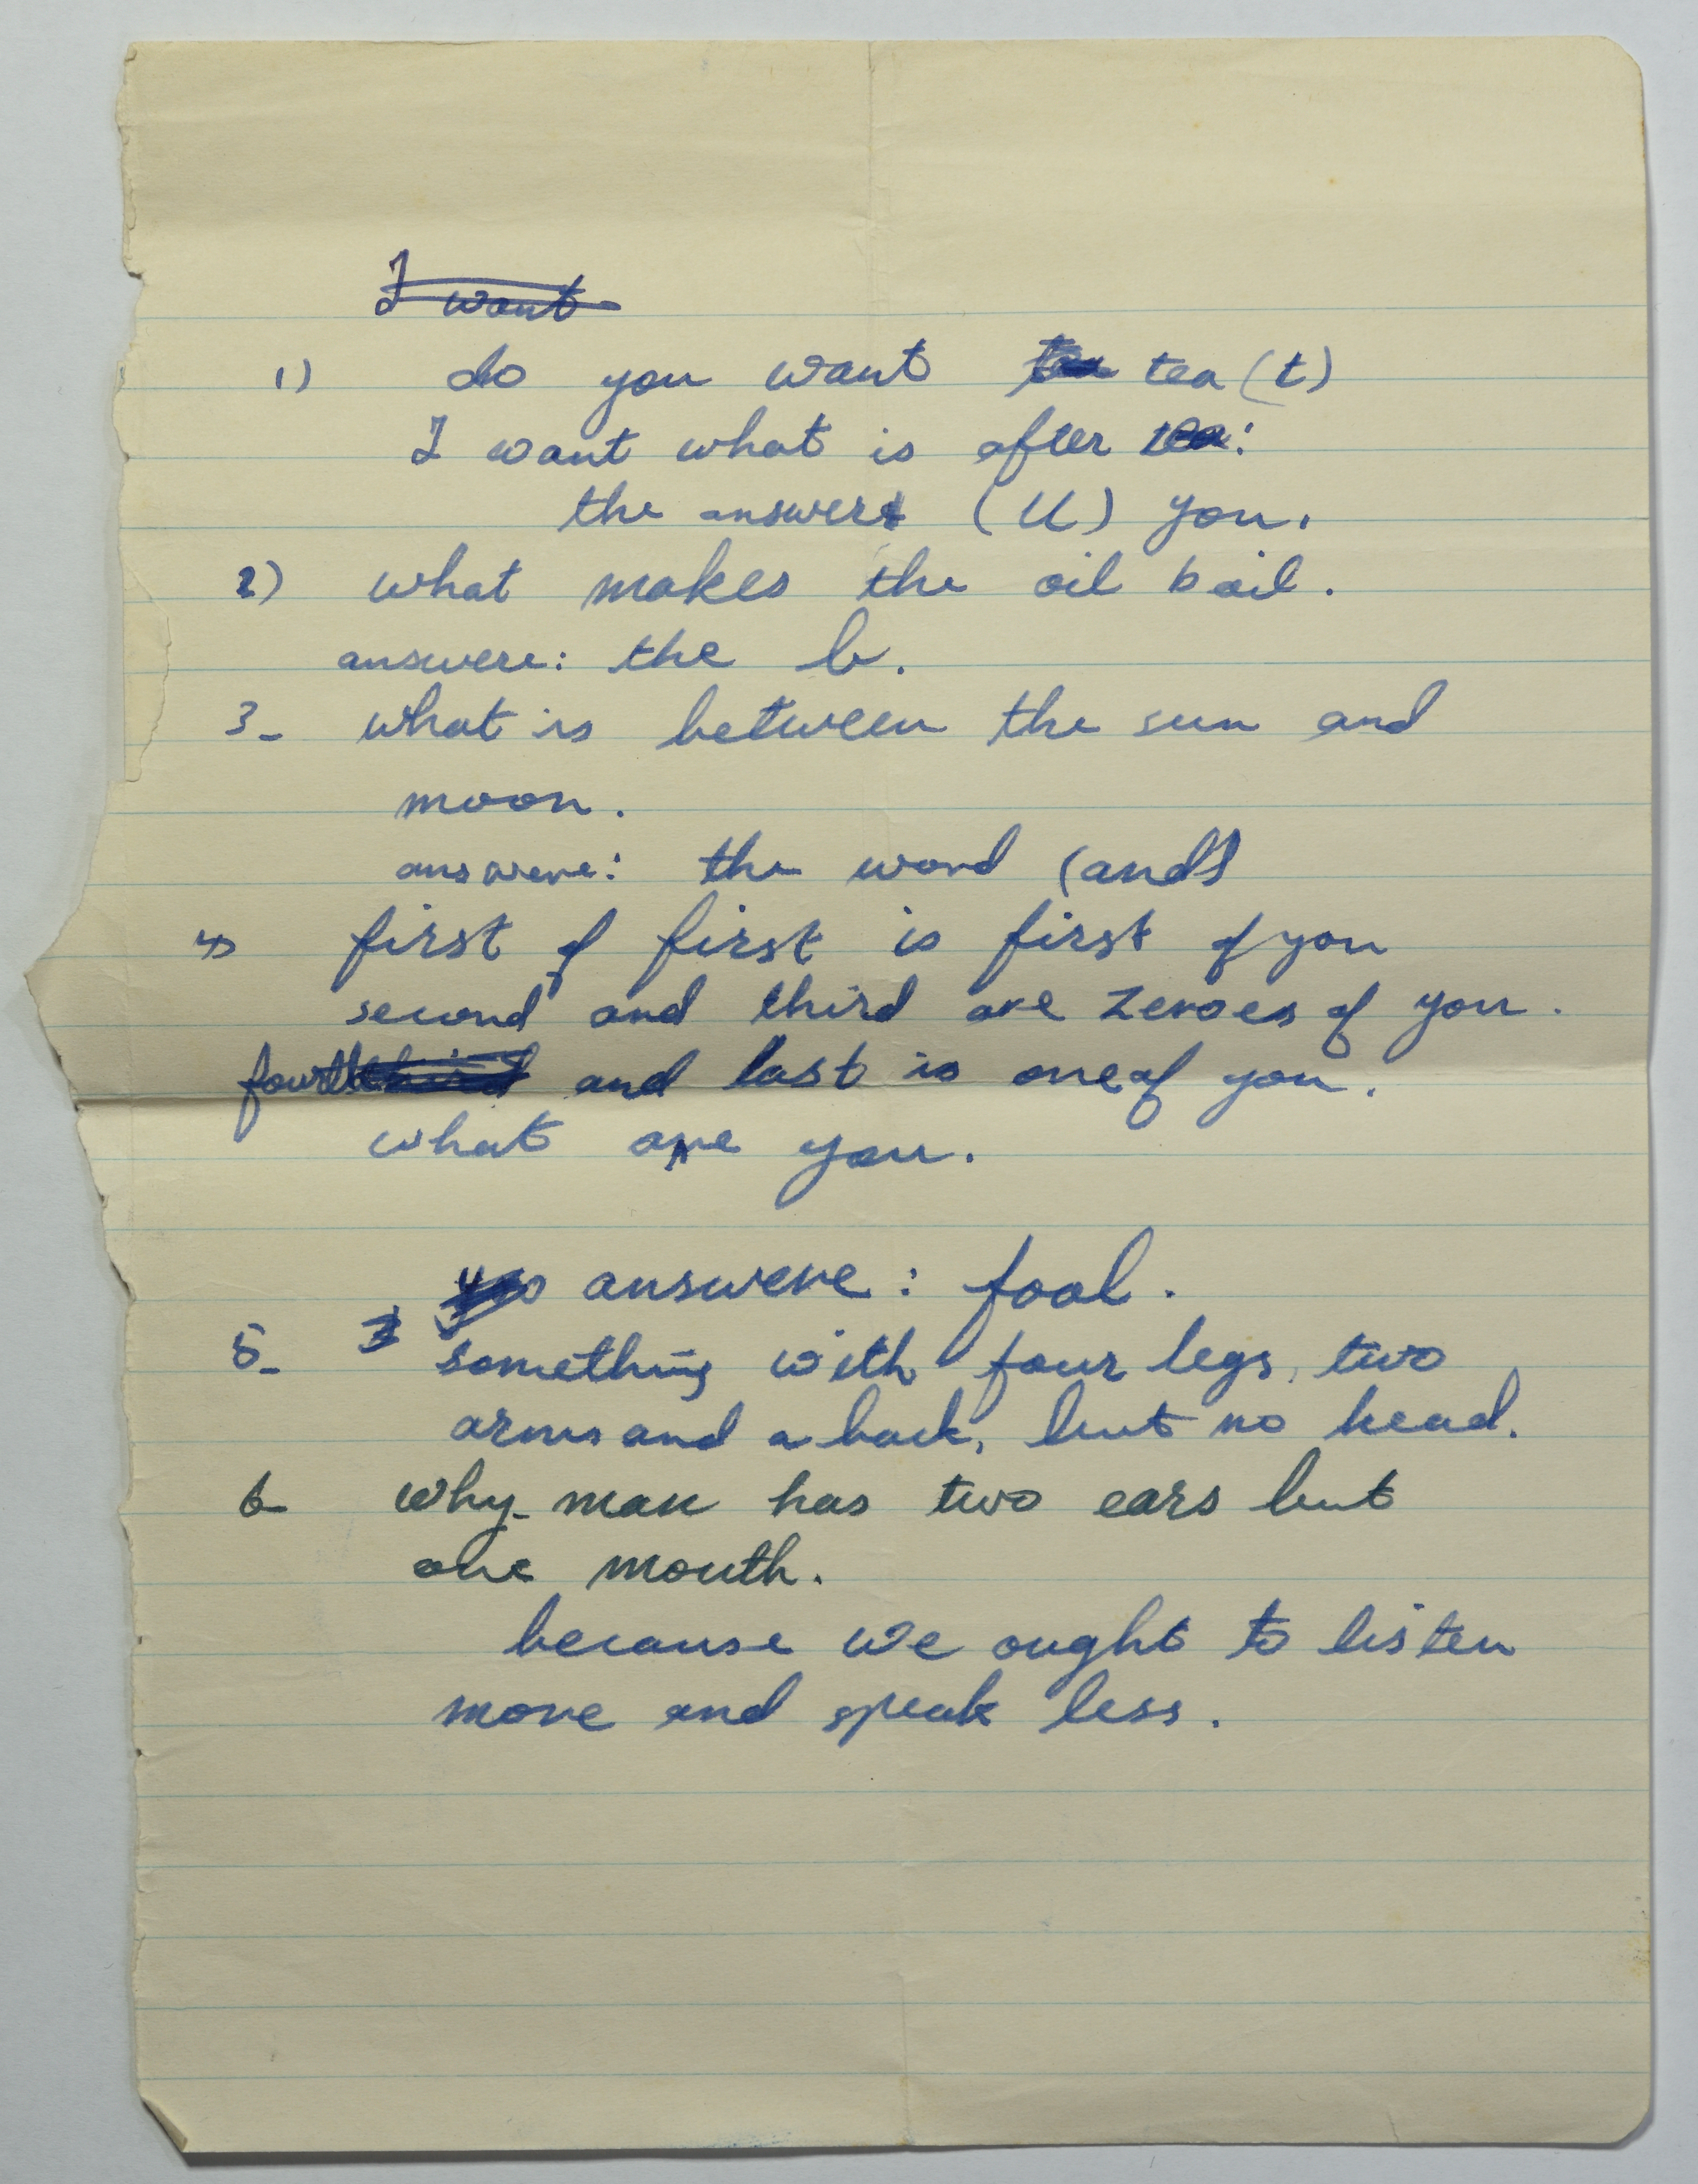 I want
1) do you want tea (t)
I want what is after tea:
the answere (U) you.
2) what makes the oil boil.
answere: the b.
3- what is between the sun and
moon.
answere: the word (and)
4) first of first is first of you
second and third are zeroes of you.
fourth third and last is one of you.
what are you.
answere: fool.
5- something with four legs, two
arms and a back, but no head.
6- why man has two ears but
one mouth.
because we ought to listen
more and speak less.